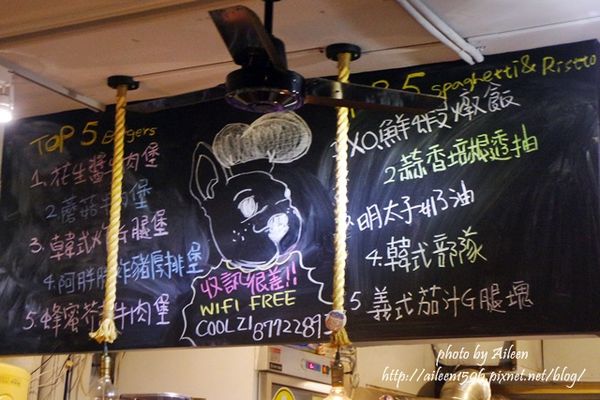 TOP 5 Burgers
1. 花生醬牛肉堡
2. 蘑菇牛肉堡
3. 韓式炸G腿堡
4. 阿胖師炸豬厚排堡
5. 蜂蜜芥末牛肉堡
收訊很差!!
WIFI FREE
COOLZI 8772289
5 spaghetti & Ristto
XO鮮蝦燉飯
2 蒜香培根透抽
3 明太子奶油
4. 韓式部隊
5 義式茄汁G腿塊
photo by Aileen
http://aileen1506.pixnet.net/blog/